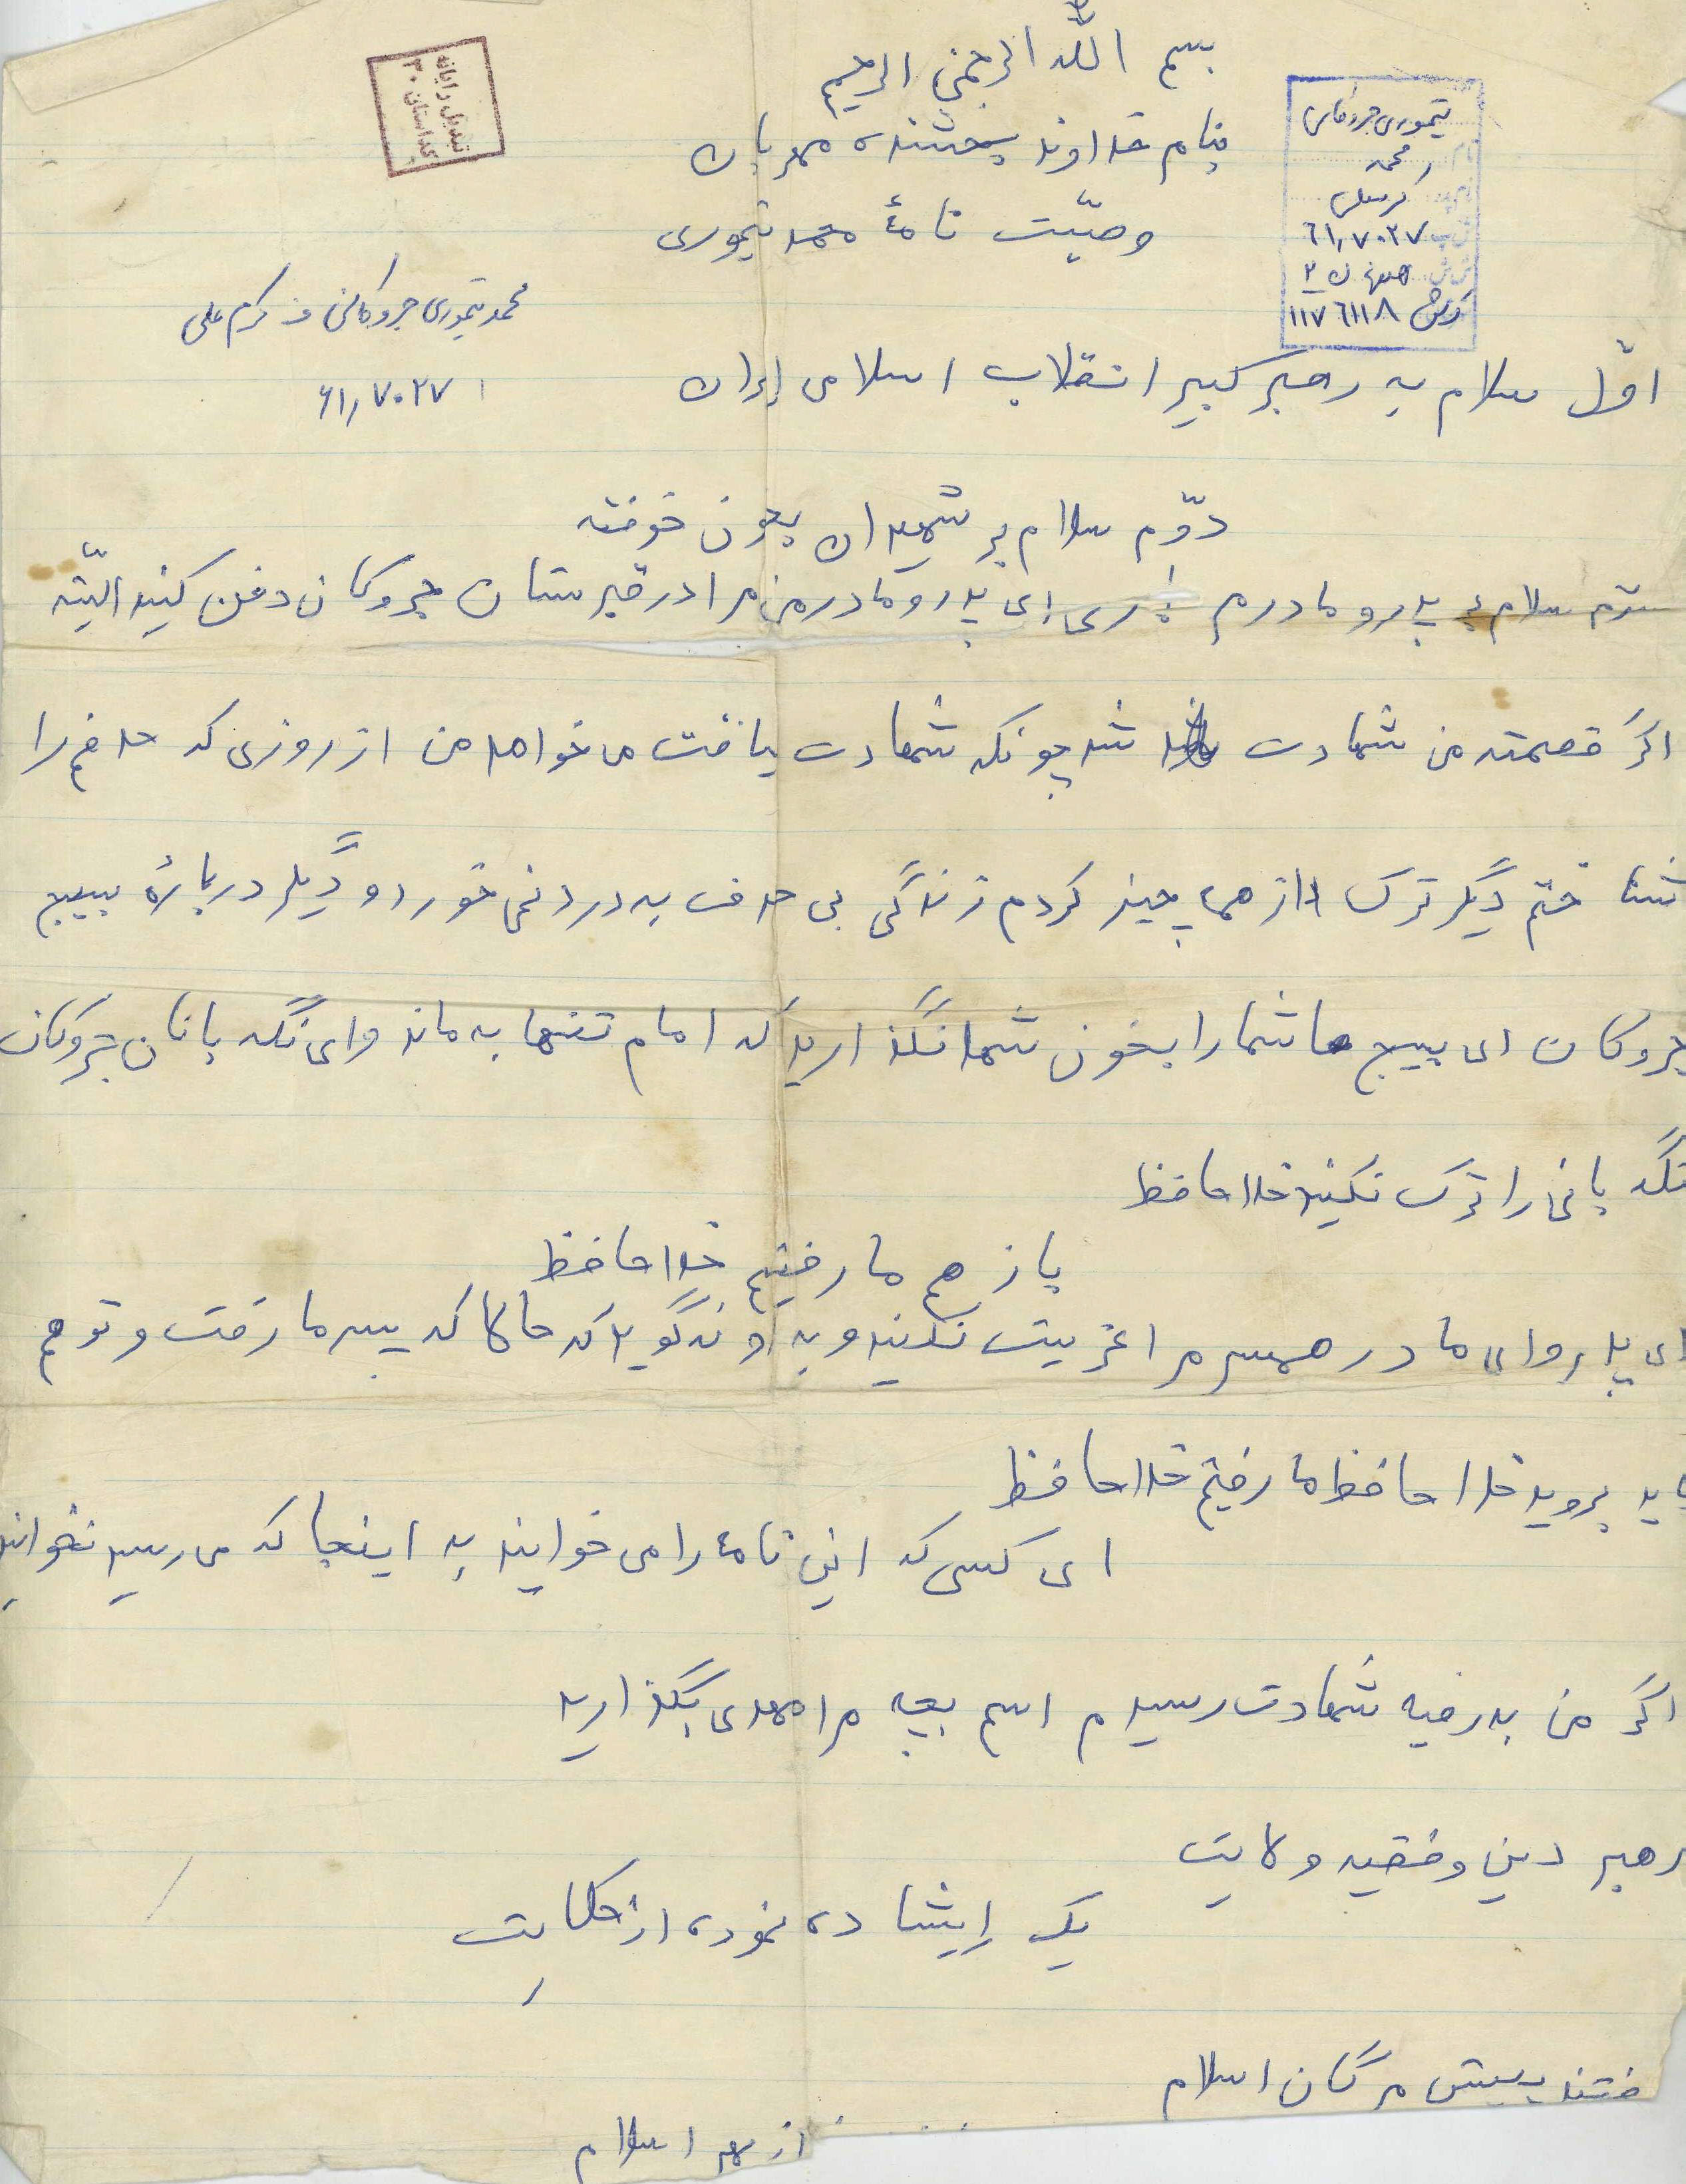 بسم اللّه الرحمن الرحیم
بنام خداوند بخشنده مهربان
وصیّت نامهٔ محمد تیموری
تیموری جروکانی
محمد
کرمعلی
۶۱,۷۰۲۷
اصفهان ۲
۱۱۷۶۱۱۸
تبدیل رایانه
گلستان ۳۰
محمد تیموری جروکانی ف کرم علی
۶۱,۷۰۲۷
اوّل سلام به رهبر کبیر انقلاب اسلامی ایران
دوّم سلام بر شهیدان بخون خوفته
سوّم سلام به پدر و مادرم ای پدر و مادر من مرا در قبرستان جروکان دفن کنید البتّه
اگر قصمته من شهادت شد چونکه شهادت یافت می خواهد من از روزی که هدفم را
شناختم دیگر ترک از همه چیز کردم زندگی بی هدف به درد نمی خورد و دیگر دربارهٔ بسیج
جروکان ای بسیج ها شما را بخون شهدا نگذارید که امام تنها به ماند و ای نگه بانان جروکان
نگه بانی را ترک نکنید خدا حافظ
بازهم ما رفتیم خدا حافظ
ای پدر و ای مادر همسرم را اذیت نکنید و به او نه گوید که حالا که پسر ما رفت و تو هم
باید بروید خدا حافظ ما رفتیم خدا حافظ
ای کسی که این نامه را می خوانید به اینجا که می رسید نخوانید
اگر من به رفیه شهادت رسیدم اسم بچه مرا مهدی بگذارید
رهبر دین و فقیه ولایت
یک اِیشاده نموده از حکایت
فتند پیش مرگان اسلام
از بهر اسلام